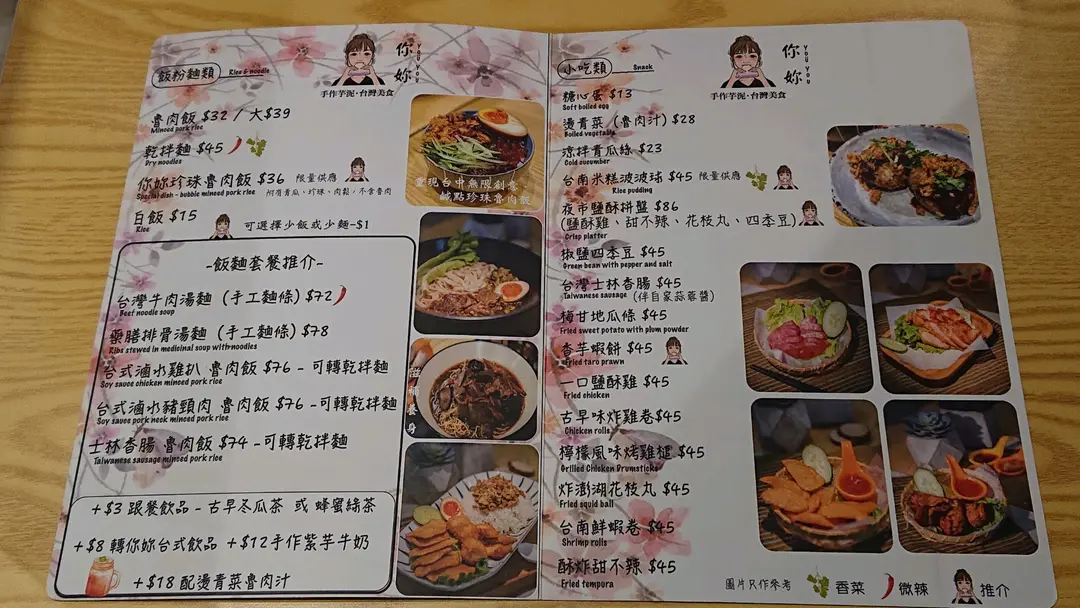 飯粉麵類 Rice & noodle
你妳
YOU YOU
手作芋泥·台灣美食
魯肉飯 $32 / 大$39
Minced pork rice
乾拌麵 $45
Dry noodles
你妳珍珠魯肉飯 $36 限量供應
Special dish - bubble minced pork rice 附有青瓜、珍珠、肉鬆，不含魯肉
白飯 $15
Rice
可選擇少飯或少麵-$1
重現台中無限創意
鹹點珍珠魯肉飯
-飯麵套餐推介-
台灣牛肉湯麵 (手工麵條) $72
Beef noodle soup
藥膳排骨湯麵 (手工麵條) $78
Ribs stewed in medicinal soup with noodles
台式滷水雞扒 魯肉飯 $76 - 可轉乾拌麵
Soy sauce chicken minced pork rice
台式滷水豬頸肉 魯肉飯 $76 -可轉乾拌麵
Soy sauce pork neck minced pork rice
士林香腸 魯肉飯 $74 -可轉乾拌麵
Taiwanese sausage minced pork rice
+$3 跟餐飲品 - 古早冬瓜茶 或 蜂蜜綠茶
+$8 轉你妳台式飲品 +$12手作紫芋牛奶
+$18 配燙青菜魯肉汁
小吃類 Snack
你妳
YOU YOU
手作芋泥·台灣美食
糖心蛋 $13
Soft boiled egg
燙青菜 (魯肉汁) $28
Boiled vegetable
涼拌青瓜絲 $23
Cold cucumber
台南米糕波波球 $45 限量供應
Rice pudding
夜市鹽酥拼盤 $86
(鹽酥雞、甜不辣、花枝丸、四季豆)
Crisp platter
椒鹽四季豆 $45
Green bean with pepper and salt
台灣士林香腸 $45
Taiwanese sausage (伴自家蒜蓉醬)
梅甘地瓜條 $45
Fried sweet potato with plum powder
香芋蝦餅 $45
Fried taro prawn
一口鹽酥雞 $45
Fried chicken
古早味炸雞卷$45
Chicken rolls
檸檬風味烤雞槌 $45
Grilled Chicken Drumsticks
炸澎湖花枝丸 $45
Fried squid ball
台南鮮蝦卷 $45
Shrimp rolls
酥炸甜不辣 $45
Fried tempura
圖片只作參考 香菜 微辣 推介